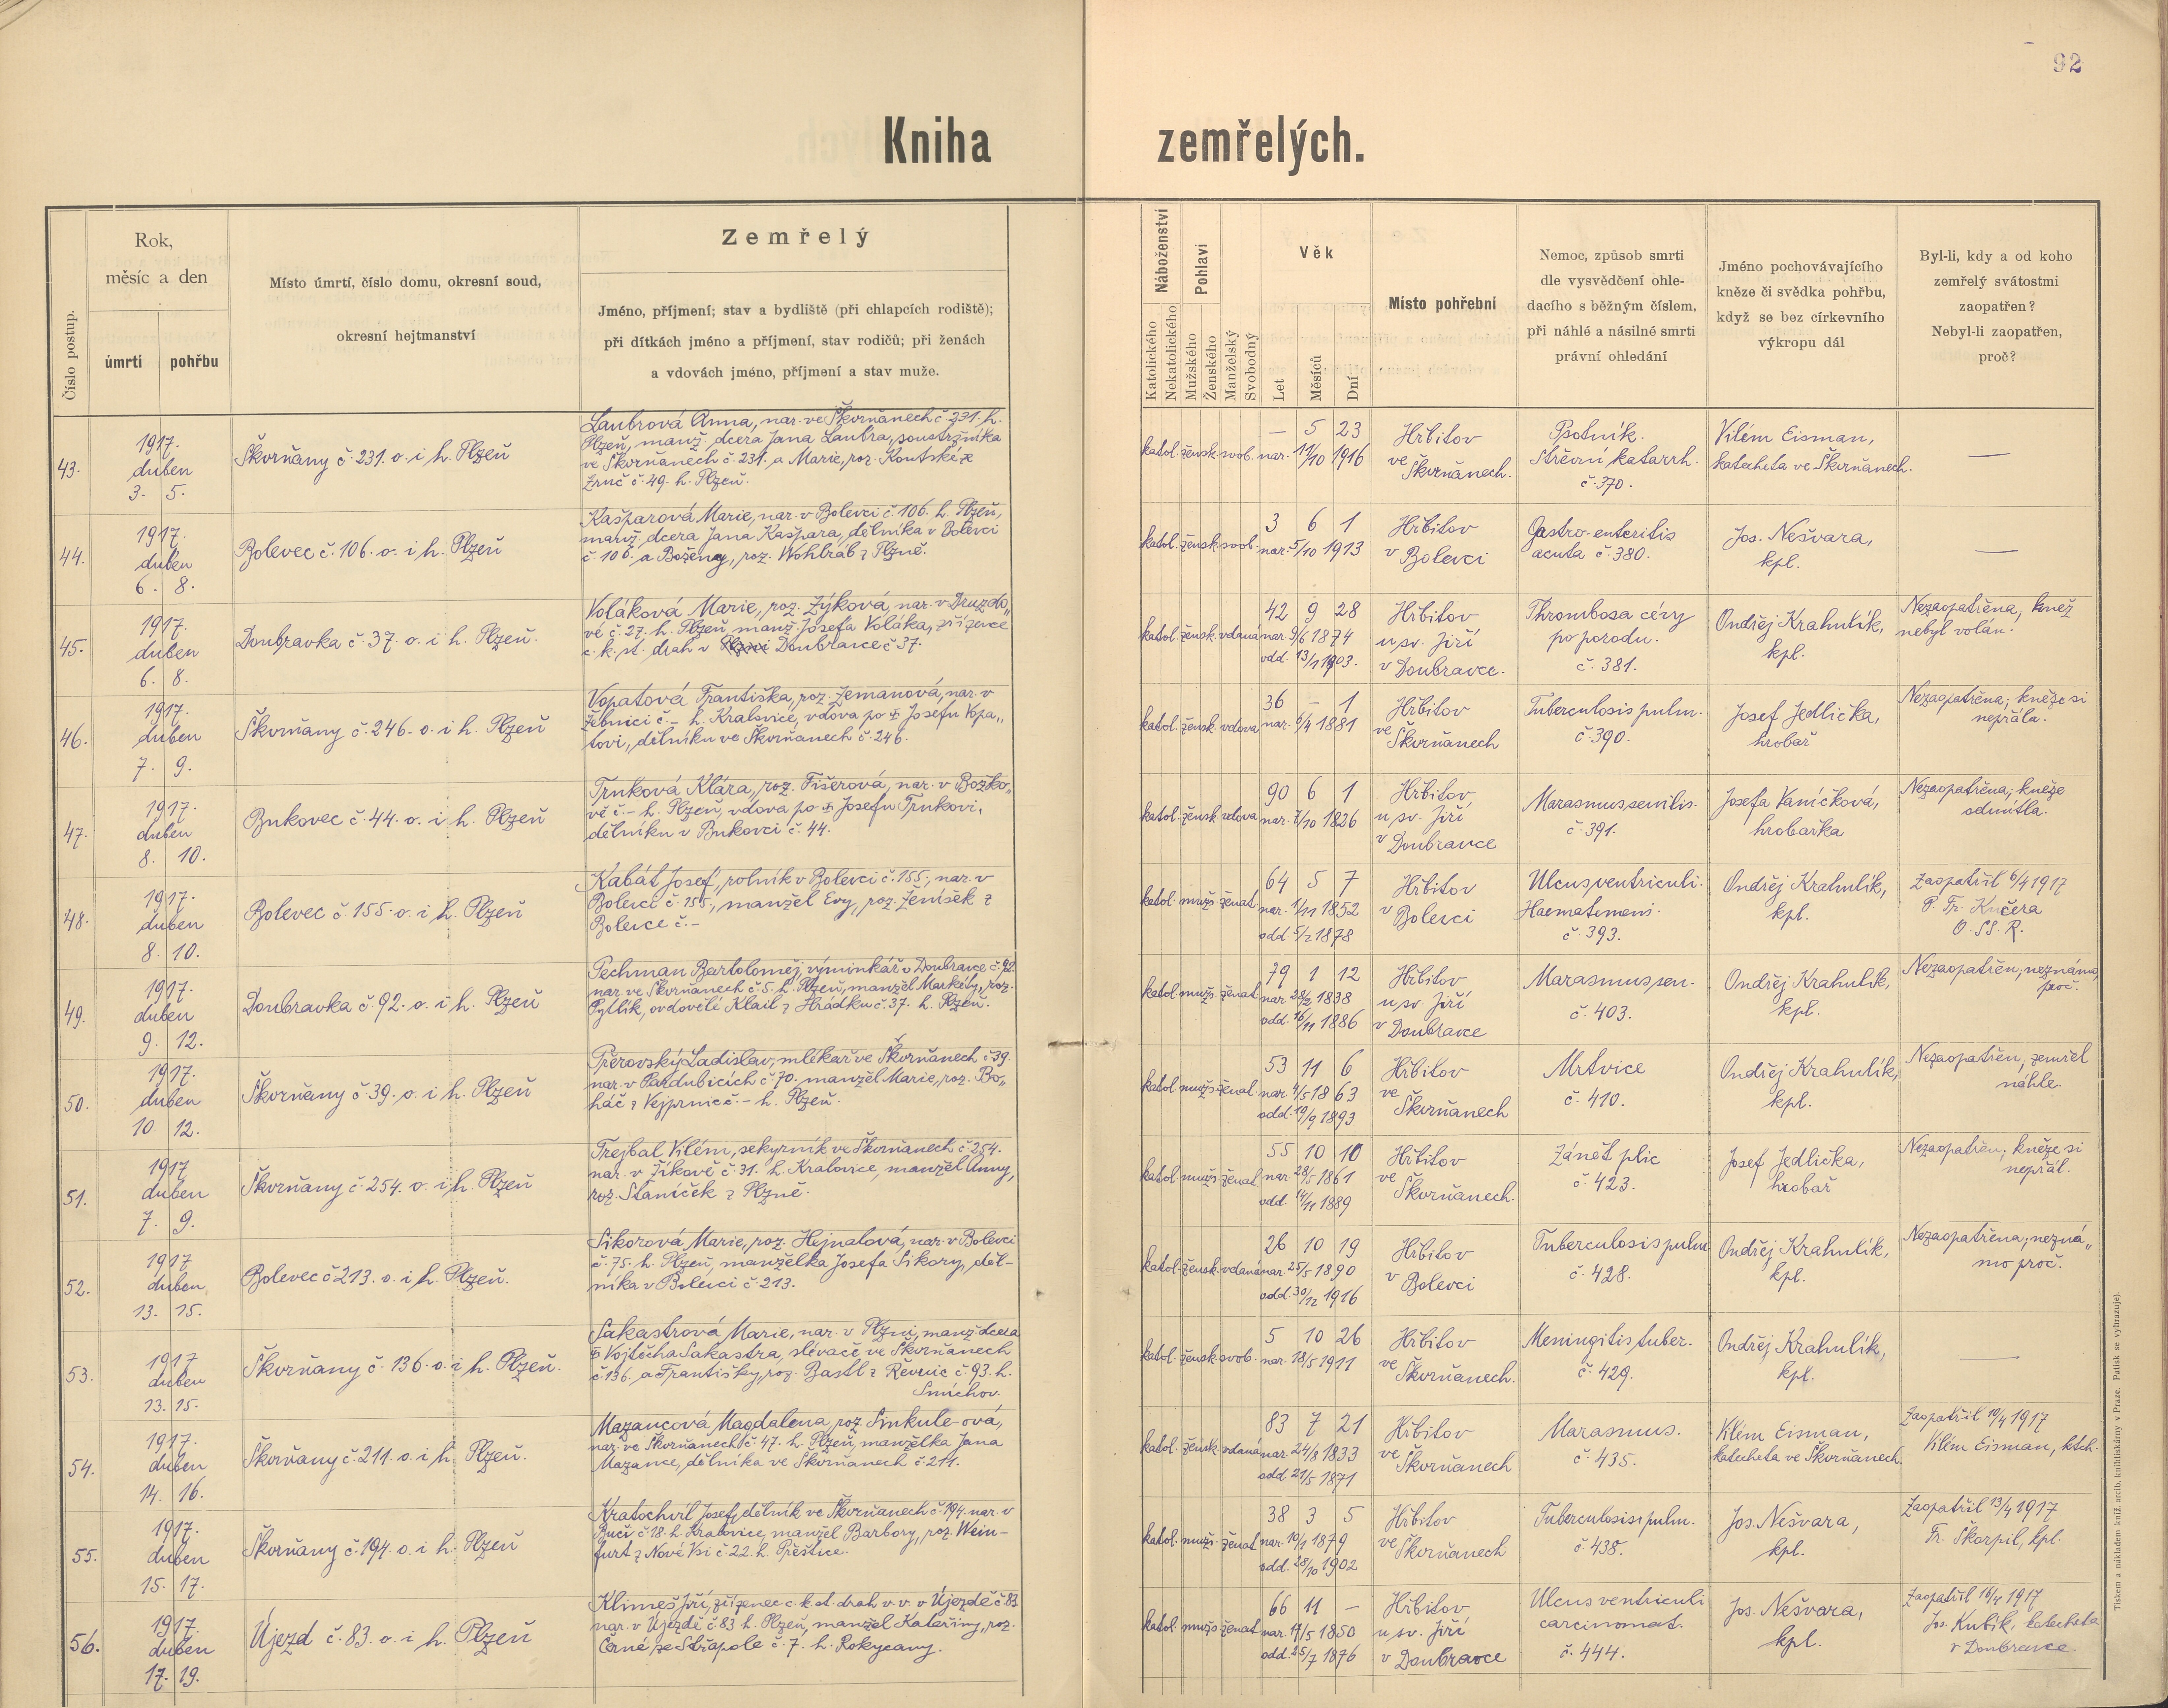 92
Kniha zemřelých.
Číslo postup.
Rok,
měsíc a den
úmrtí
pohřbu
Místo úmrtí, číslo domu, okresní soud,
okresní hejtmanství
Zemřelý
Jméno, příjmení; stav a bydliště (při chlapcích rodiště);
při dítkách jméno a příjmení, stav rodičů; při ženách
a vdovách jméno, příjmení a stav muže.
Náboženství
Katolického
Nekatolického
Pohlaví
Mužského
Ženského
Manželský
Svobodný
Věk
Let
Měsíců
Dní
Místo pohřební
Nemoc, způsob smrti
dle vysvědčení ohle-
dacího s běžným číslem,
při náhlé a násilné smrti
právní ohledání
Jméno pochovávajícího
kněze či svědka pohřbu,
když se bez církevního
výkropu dál
Byl-li, kdy a od koho
zemřelý svátostmi
zaopatřen?
Nebyl-li zaopatřen,
proč?
43.
1917.
duben
3. 5.
Škvrňany č. 231. o. i h. Plzeň
Laubrová Anna, nar. ve Škvrňanech č. 231. h.
Plzeň, manž. dcera Jana Laubra, soustružníka
ve Škvrňanech č. 231. a Marie, roz. Koutské z
Zruč č. 49. h. Plzeň.
katol. žensk. svob.
— 5 23
nar. 11/10 1916
Hřbitov
ve
Škvrňanech.
Psotník.
Střevní katarrh.
č. 370.
Vilém Eisman,
katecheta ve Škvrňanech.
—
44.
1917.
duben
6. 8.
Bolevec č. 106. o. i h. Plzeň
Kašparová Marie, nar. v Bolevci č. 106. h. Plzeň,
manž. dcera Jana Kašpara, dělníka v Bolevci
č. 106. a Boženy, roz. Wohlráb z Plzně.
katol. žensk. svob.
3 6 1
nar. 5/10 1913
Hřbitov
v Bolevci
Gastro-enteritis
acuta č. 380.
Jos. Nešvara,
kpl.
—
45.
1917.
duben
6. 8.
Doubravka č. 37. o. i h. Plzeň.
Voláková Marie, roz. Zýková, nar. v Druzdo„
vě č. 27. h. Plzeň, manž. Josefa Voláka, zřízence
c. k. st. drah v Plzni Doubravce č 37.
katol. žensk. vdaná
42 9 28
nar. 9/6 1874
odd. 13/1 1903.
Hřbitov
u sv. Jiří
v Doubravce.
Thrombosa cévy
po porodu.
č. 381.
Ondřej Krahulík,
kpl.
Nezaopatřena; kněz
nebyl volán.
46.
1917.
duben
7. 9.
Škvrňany č. 246. o. i h. Plzeň
Vopatová Františka, roz. Zemanová, nar. v
Žebnici č. – h. Kralovice, vdova po ✠ Josefu Vopa„
tovi, dělníku ve Škvrňanech č 246.
katol. žensk. vdova
36 – 1
nar. 6/4 1881
Hřbitov
ve
Škvrňanech
Tuberculosis pulm.
č. 390.
Josef Jedlička,
hrobař
Nezaopatřena; kněze si
nepřála.
47.
1917.
duben
8. 10.
Bukovec č. 44. o. i h. Plzeň
Trnková Klára, roz. Fišerová, nar. v Božko„
vě č. – h. Plzeň, vdova po ✠ Josefu Trnkovi,
dělníku v Bukovci č. 44.
katol. žensk. vdova
90 6 1
nar. 7/10 1826
Hřbitov
u sv. Jiří
v Doubravce
Marasmus senilis.
č. 391.
Josefa Vaníčková,
hrobařka
Nezaopatřena; kněze
odmítla.
48.
1917.
duben
8. 10.
Bolevec č. 155. o. i h. Plzeň
Kabát Josef, rolník v Bolevci č. 155., nar. v
Bolevci č. 155., manžel Evy, roz. Ženíšek z
Bolevce č. –
katol. mužs. ženat.
64 5 7
nar. 1/11 1852
odd. 5/2 1878
Hřbitov
v Bolevci
Ulcus ventriculi.
Haematemesis.
č. 393.
Ondřej Krahulík,
kpl.
Zaopatřil 6/4 1917
P. Fr. Kučera
O. SS. R.
49.
1917.
duben
9. 12.
Doubravka č. 92. o. i h. Plzeň
Pechman Bartoloměj, výminkář v Doubravce č. 92.
nar. ve Škvrňanech č. 5. h. Plzeň, manžel Markéty, roz.
Pytlík, ovdovělé Klail z Hrádku č. 37. h. Plzeň.
katol. mužs. ženat.
79 1 12
nar. 28/2 1838
odd. 16/11 1886
Hřbitov
u sv. Jiří
v Doubravce
Marasmus sen.
č. 403.
Ondřej Krahulík,
kpl.
Nezaopatřen; neznámo,
proč.
50.
1917.
duben
10. 12.
Škvrňany č. 39. o. i h. Plzeň
Přerovský Ladislav, mlékař ve Škvrňanech č. 39.
nar. v Pardubicích č. 70. manžel Marie, roz. Bo„
háč z Vejprnic č. – h. Plzeň.
katol. mužs. ženat.
53 11 6
nar. 4/5 1863
odd. 19/9 1893
Hřbitov
ve
Škvrňanech
Mrtvice
č. 410.
Ondřej Krahulík,
kpl.
Nezaopatřen; zemřel
náhle.
51.
1917
duben
7. 9.
Škvrňany č. 254. o. i h. Plzeň
Trejbal Vilém, sekyrník ve Škvrňanech č. 254.
nar. v Žikově č. 31. h. Kralovice, manžel Anny,
roz. Staníček z Plzně.
katol. mužs. ženat
55 10 10
nar. 28/5 1861
odd. 14/11 1889
Hřbitov
ve
Škvrňanech.
Zánět plic
č. 423.
Josef Jedlička,
hrobař
Nezaopatřen; kněze si
nepřál.
52.
1917
duben
13. 15.
Bolevec č 213. o. i h. Plzeň.
Sikorová Marie, roz. Hejnalová, nar. v Bolevci
č. 75. h. Plzeň, manželka Josefa Sikory, děl-
níka v Bolevci č 213.
katol. žensk. vdaná
26 10 19
nar. 25/5 1890
odd. 30/12 1916
Hřbitov
v Bolevci
Tuberculosis pulm.
č. 428.
Ondřej Krahulík,
kpl.
Nezaopatřena; nezná„
mo proč.
53.
1917
duben
13. 15.
Škvrňany č. 136. o. i h. Plzeň.
Sakastrová Marie, nar. v Plzni, manž. dcera
✠ Vojtěcha Sakastra, slévače ve Škvrňanech
č. 136. a Františky, roz. Bastl z Řevnic č. 93. h.
Smíchov.
katol. žensk. svob.
5 10 26
nar. 18/5 1911
Hřbitov
ve
Škvrňanech.
Meningitis tuber.
č. 429.
Ondřej Krahulík,
kpl.
—
54.
1917.
duben
14. 16.
Škvrňany č. 211. o. i h. Plzeň.
Mazancová Magdalena, roz. Sinkule-ová,
nar. ve Škvrňanech č. 47. h. Plzeň, manželka Jana
Mazance, dělníka ve Škvrňanech č 211.
katol. žensk. vdaná
83 7 21
nar. 24/8 1833
odd. 21/5 1871
Hřbitov
ve
Škvrňanech
Marasmus.
č. 435.
Vilém Eisman,
katecheta ve Škvrňanech.
Zaopatřil 10/4 1917
Vilém Eisman, ktch.
55.
1917.
duben
15. 17.
Škvrňany č. 194. o. i h. Plzeň
Kratochvíl Josef, dělník ve Škvrňanech č. 194. nar. v
Bučí č. 18. h. Kralovice, manžel Barbory, roz. Wein-
furt z Nové Vsi č. 22. h. Přeštice.
katol. mužs. ženat
38 3 5
nar. 10/1 1879
odd. 28/10 1902
Hřbitov
ve
Škvrňanech
Tuberculosis pulm.
č. 438.
Jos. Nešvara,
kpl.
Zaopatřil 13/4 1917
Fr. Škorpil, kpl.
56.
1917.
duben
17. 19.
Újezd č. 83. o. i h. Plzeň
Klimeš Jiří, zřízenec c. k. st. drah v. v. v Újezdě č 83
nar. v Újezdě č. 83 h. Plzeň, manžel Kateřiny, roz.
Černé ze Střapole č. 7. h. Rokycany.
katol. mužs. ženat
66 11 –
nar. 17/5 1850
odd. 25/7 1876
Hřbitov
u sv. Jiří
v Doubravce
Ulcus ventriculi
carcinomat.
č. 444.
Jos. Nešvara,
kpl.
Zaopatřil 16/4 1917
Jos. Kubík, katecheta
v Doubravce.
Tiskem a nákladem kníž. arcib. knihtiskárny v Praze. Patisk se vyhrazuje).